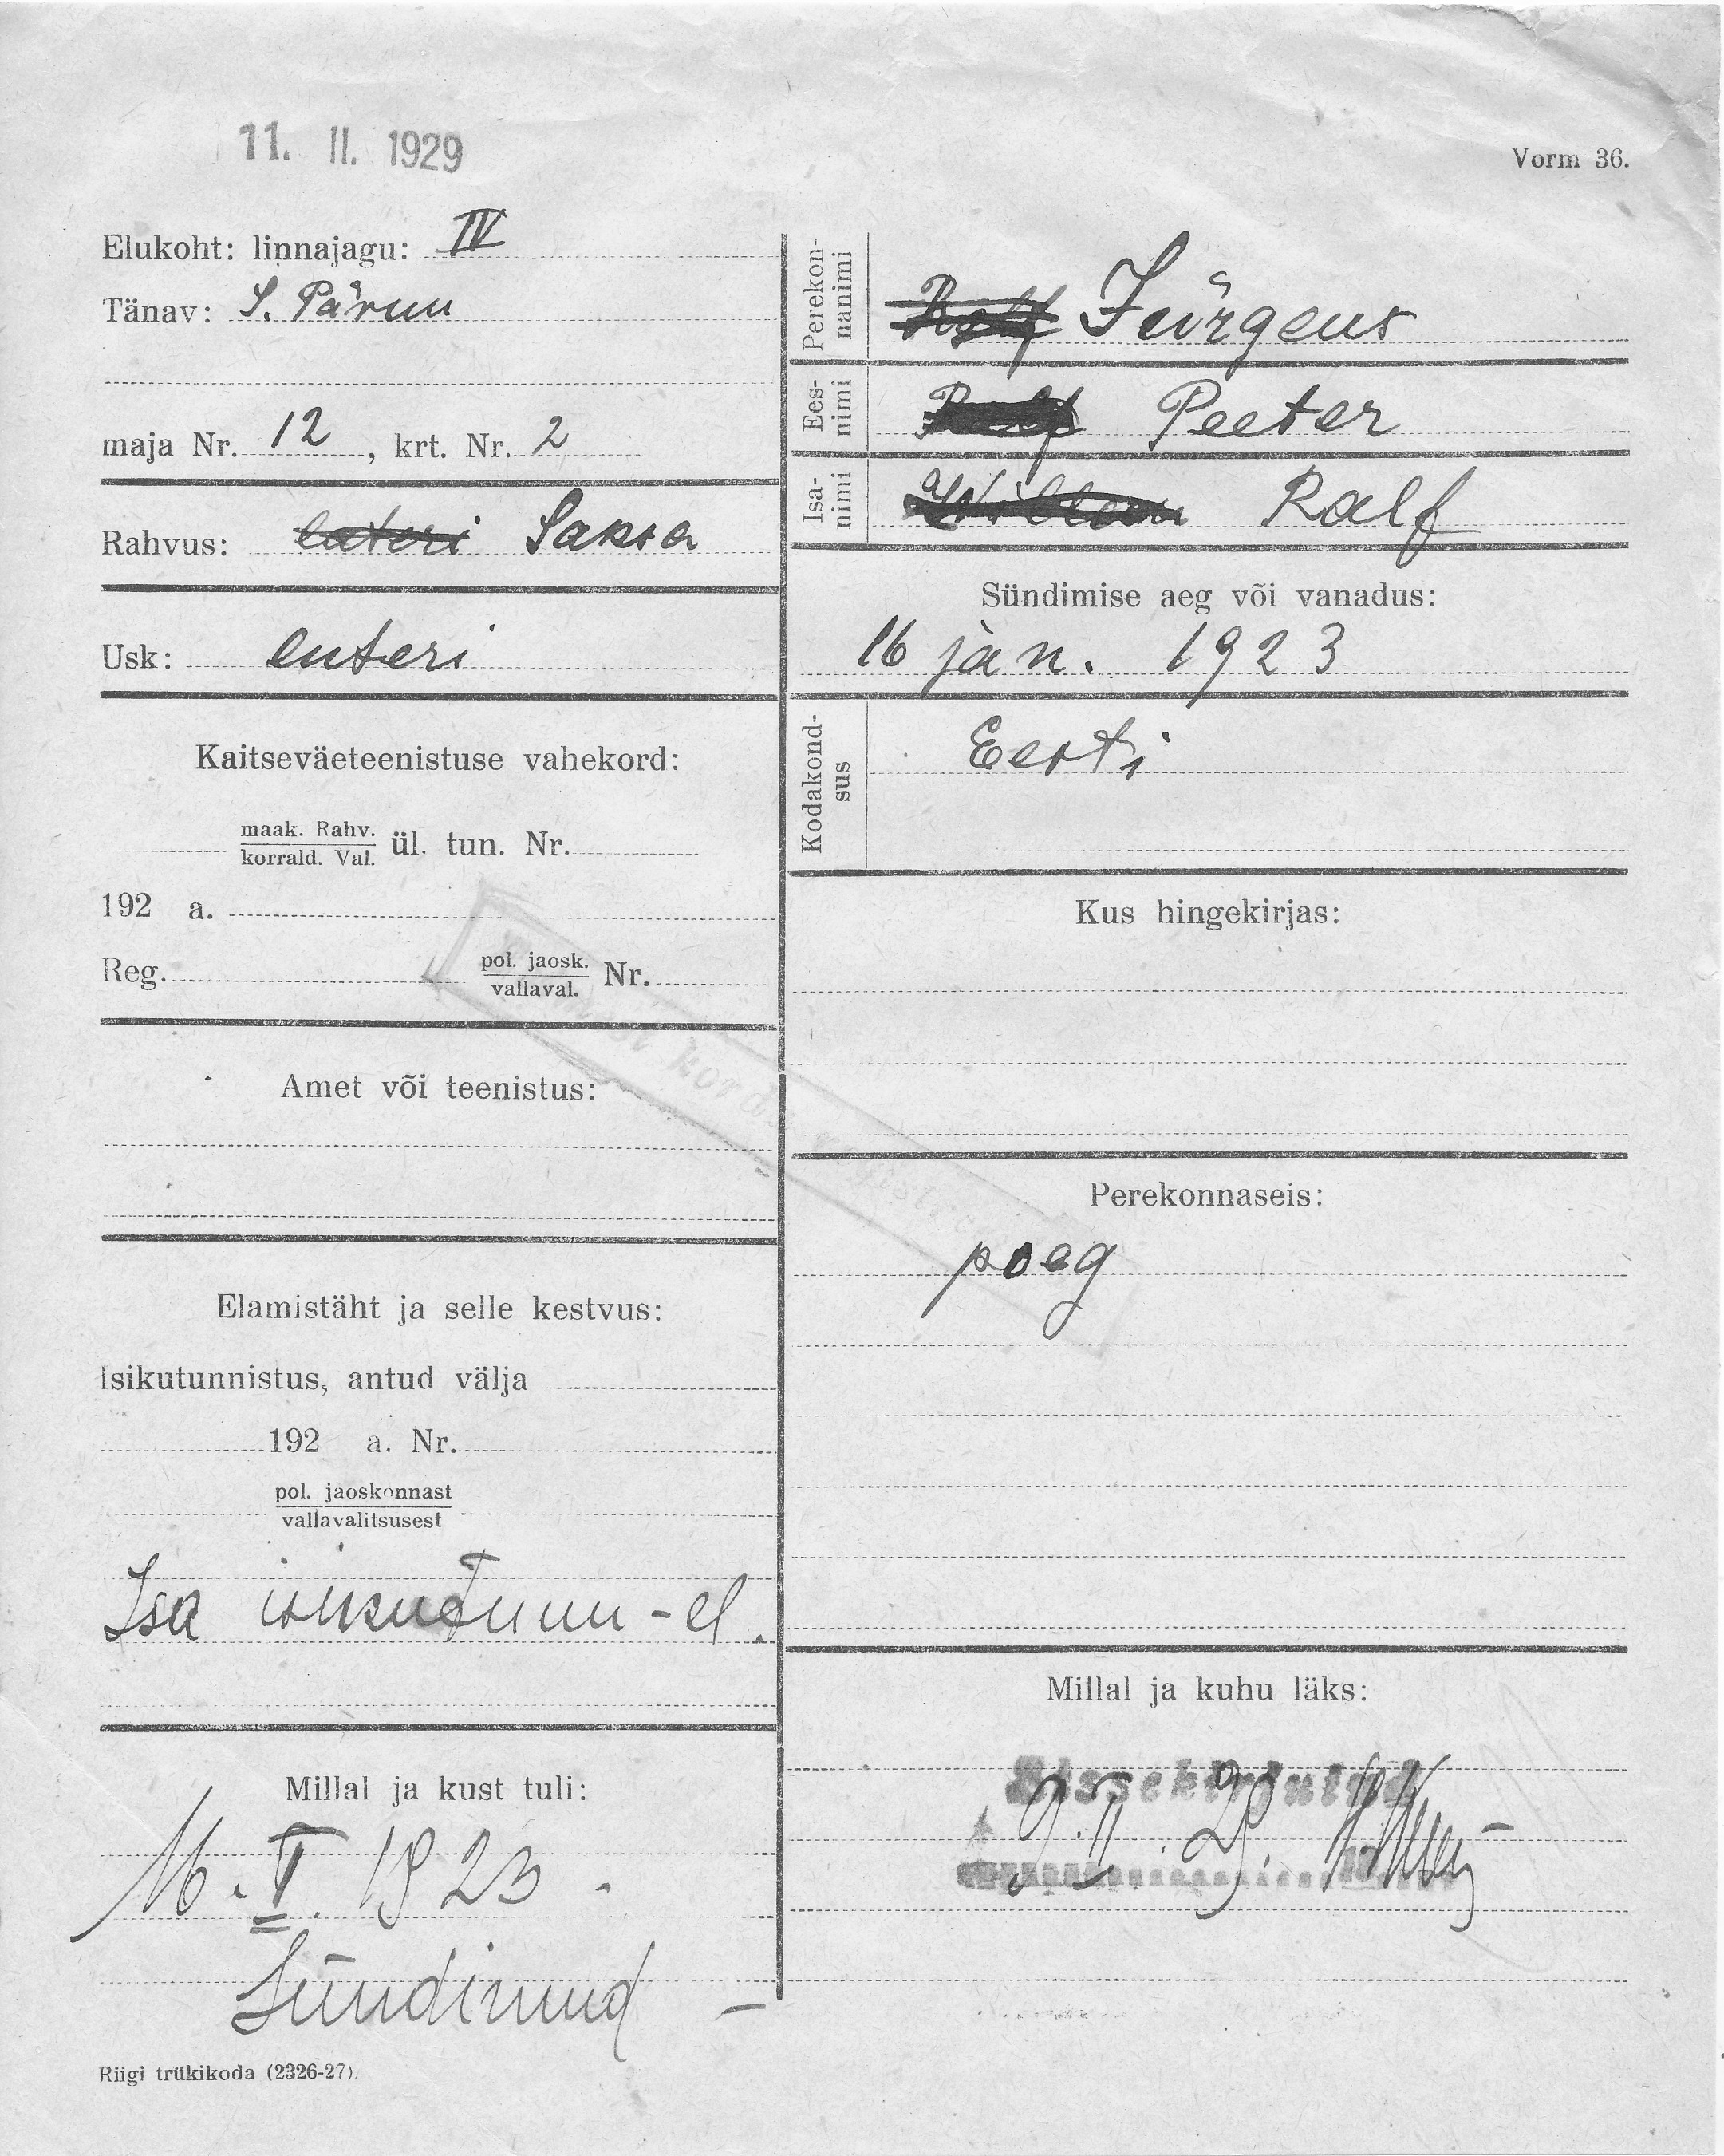 11. II. 1929
Vorm 36.
Elukoht: linnajagu: IV
Tänav: S. Pärnu
maja Nr. 12, krt. Nr. 2
Rahvus: luteri Saksa
Usk: luteri
Kaitseväeteenistuse vahekord:
maak. Rahv.
korrald. Val. ül. tun. Nr.
192 a.
Reg. pol. jaosk.
vallaval. Nr.
Amet või teenistus:
Elamistäht ja selle kestvus:
Isikutunnistus, antud välja
192 a. Nr.
pol. jaoskonnast
vallavalitsusest
Isa isikutunn-el.
Millal ja kust tuli:
16. I. 1923.
Sündinud -
Riigi trükikoda (2326-27).
Perekon-
nanimi
Jürgens
Ees-
nimi
Ralf Peeter
Isa-
nimi
Ralf
Sündimise aeg või vanadus:
16 jan. 1923
Kodakond-
sus
Eesti
Kus hingekirjas:
Perekonnaseis:
poeg
Millal ja kuhu läks:
Sissekirjutud
9. II. 29.